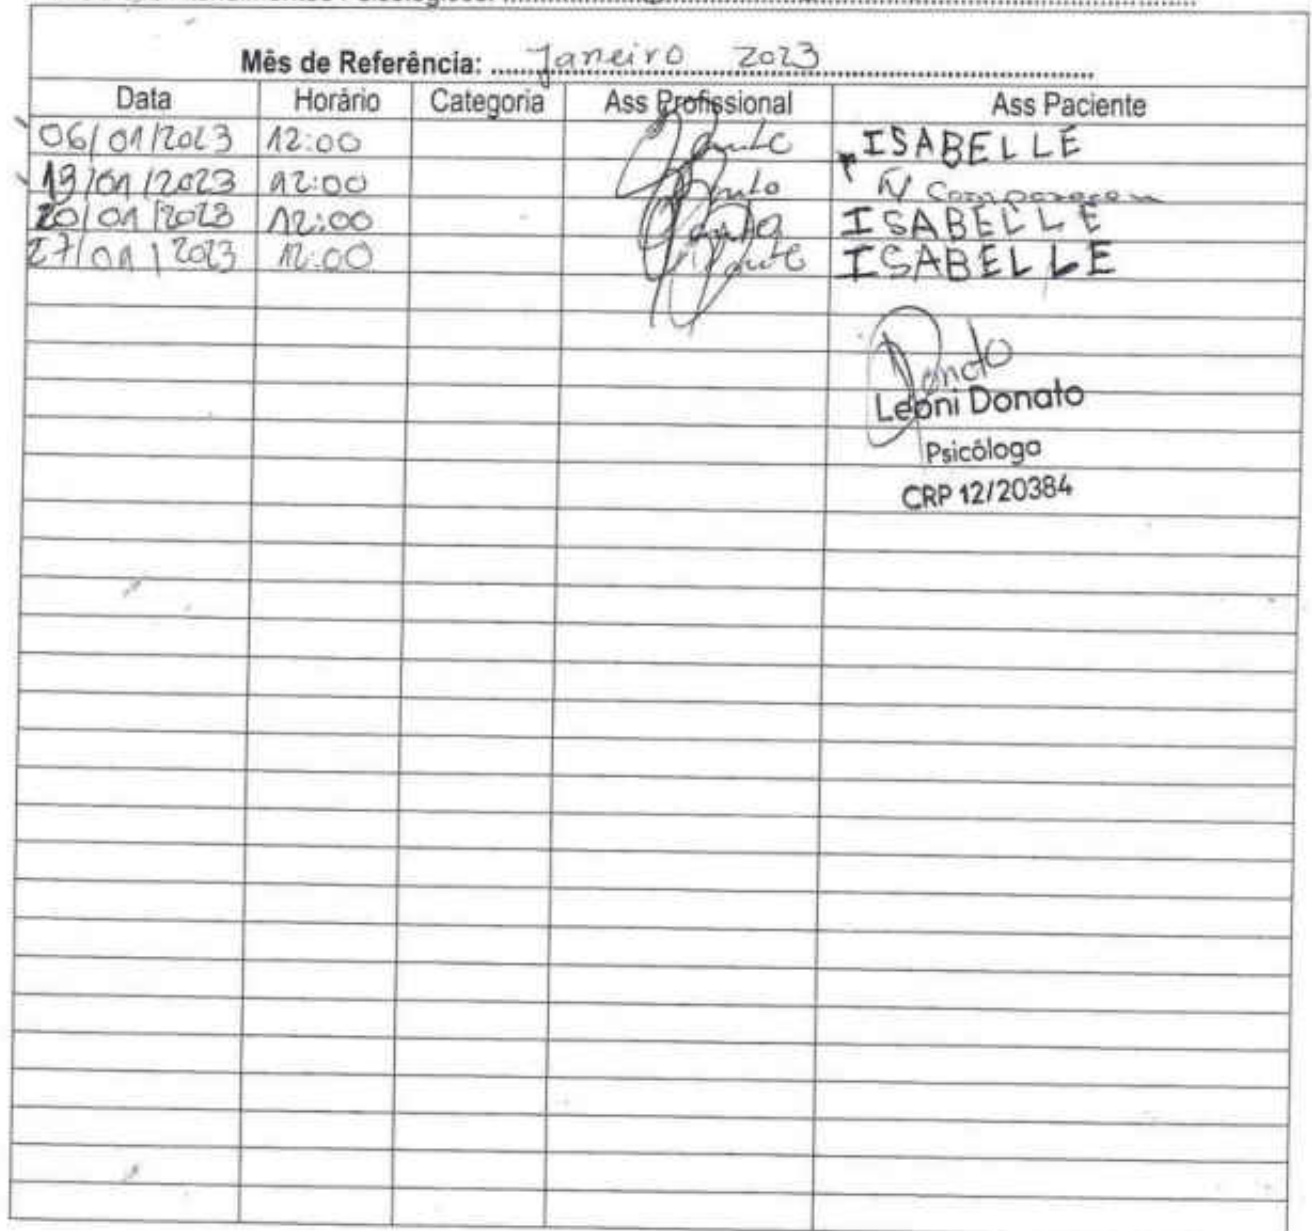 Mês de Referência: Janeiro 2023
Data Horário Categoria Ass Profissional Ass Paciente
06/01/2023 12:00 ISABELLE
13/01/2023 12:00 Ñ Compareceu
20/01/2023 12:00 ISABELLE
27/01/2023 12:00 ISABELLE
Donato
Leoni Donato
Psicóloga
CRP 12/20384